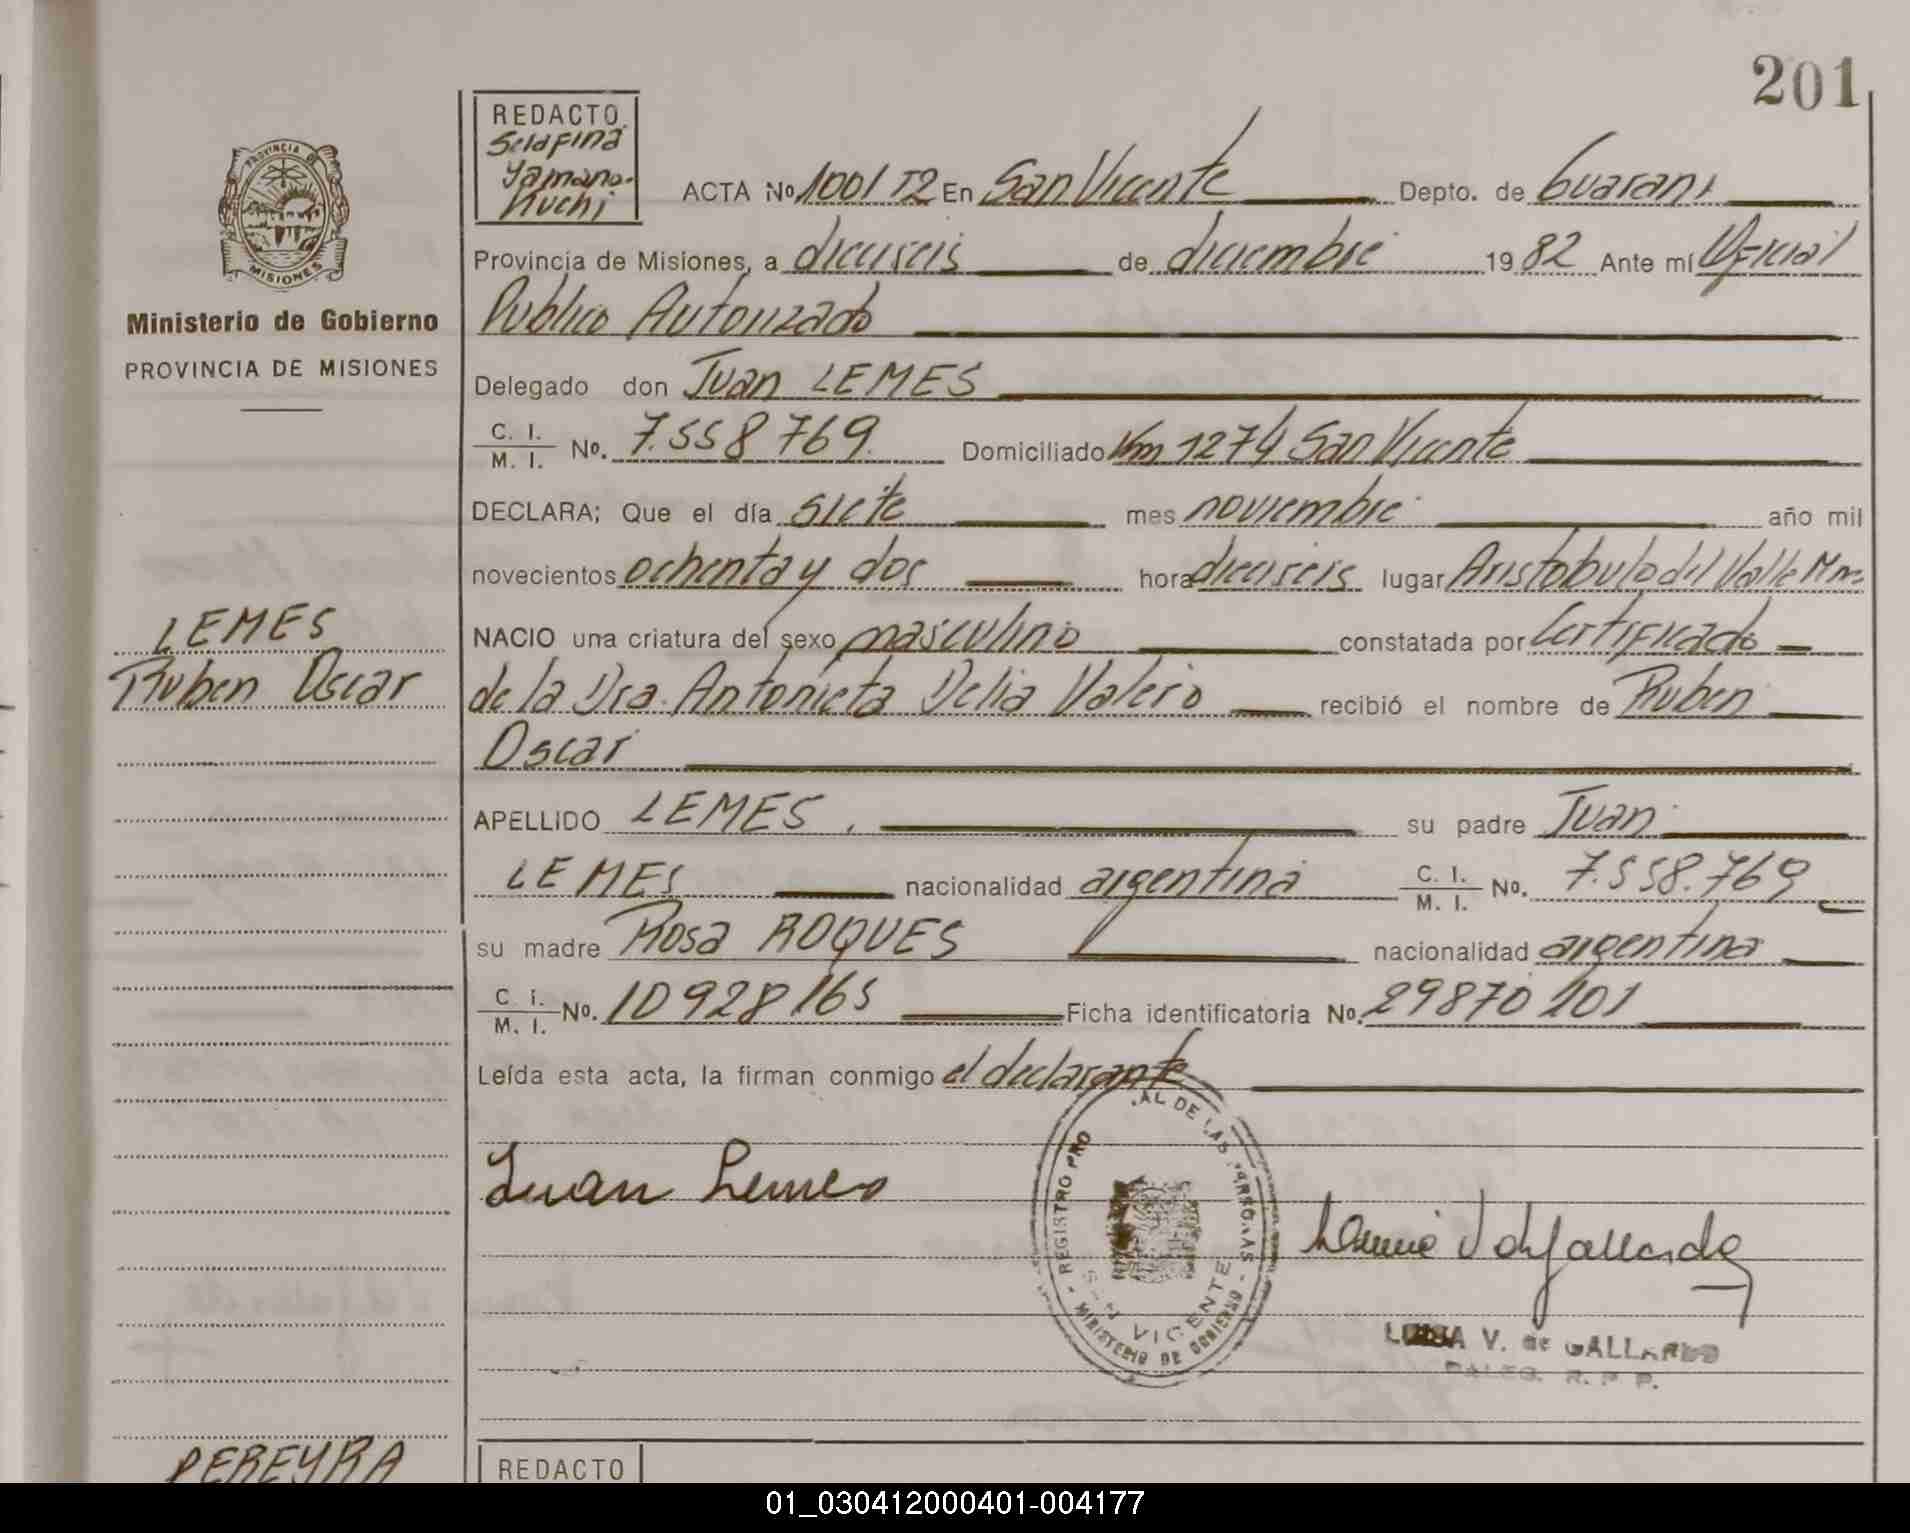 201
REDACTO
Serafina
Yamano-
Kuchi
PROVINCIA DE
MISIONES
ACTA Nº 1001 T2 En San Vicente Depto. de Guarani
Provincia de Misiones, a dieciseis de diciembre 1982 Ante mí Oficial
Ministerio de Gobierno
Publico Autorizado
PROVINCIA DE MISIONES
Delegado don Juan LEMES
C. I. / M. I. Nº. 7.558769. Domiciliado Km 1274 San Vicente
DECLARA; Que el día siete mes noviembre año mil
novecientos ochenta y dos hora dieciseis lugar Aristobulo del Valle Mnes
LEMES
NACIO una criatura del sexo masculino constatada por Certificado
Ruben Oscar
de la Dra. Antonieta Delia Valero recibió el nombre de Ruben
Oscar
APELLIDO LEMES. su padre Juan
LEMES nacionalidad argentina C. I. / M. I. Nº. 7.558.769
su madre Rosa ROQUES nacionalidad argentina
C. I. / M. I. Nº. 10928165 Ficha identificatoria Nº. 29870201
Leída esta acta, la firman conmigo el declarante
Juan Lemes
REGISTRO PRO AL DE LAS PERSONAS
MINISTERIO DE GOBIERNO
VICENTE
V. de GALLARDO
R. P. P.
PEREYRA
REDACTO
01_030412000401-004177